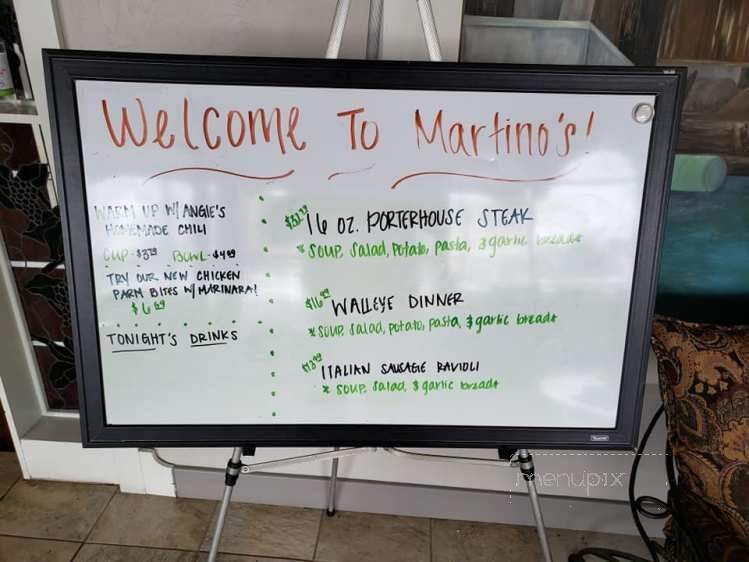 Welcome To Martino's!
WARM UP W/ ANGIE'S
HOMEMADE CHILI
CUP- BOWL-
TRY OUR NEW CHICKEN
PARM BITES W/ MARINARA!
$6
TONIGHT'S DRINKS
16 OZ. PORTERHOUSE STEAK
* SOUP, Salad, Potato, pasta, & garlic bread*
$16 WALLEYE DINNER
* SOUP, Salad, potato, pasta, & garlic bread*
ITALIAN SAUSAGE RAVIOLI
* SOUP, Salad, & garlic bread*
menupix